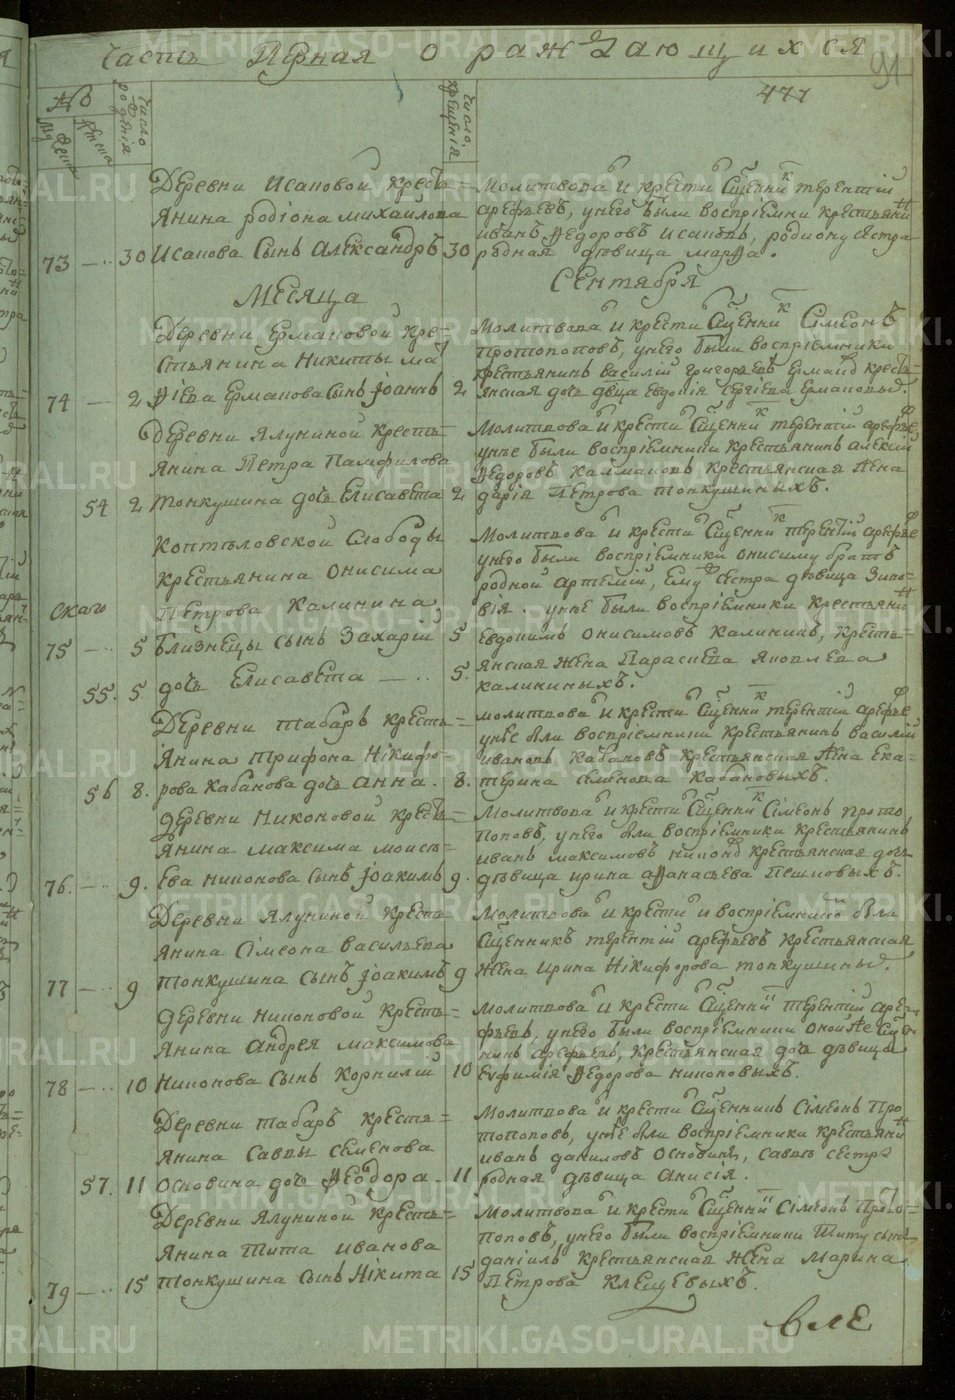 Часть Перная о раждающихся
91
477
№
Муж
Женска
число рожденія
число крещенія
Деревни Исаковой крест=
янина родіона михаилова
73 — 30 Исакова Сынъ Александръ 30
Молитвова и крести Сщенник терентій
арефьевъ, унего были воспріемники крестьянин
иванъ Ѳедоровъ Исаковъ, родиону сестра
родная дѣвица марѳа.
Месяца
Сентября
Деревни Ермаковой кре=
стьянина Никиты ма
74 — 2 ѳіева Ермакова Сынъ Іоаннъ 2
Молитвова и крести Сщенник Сімеонъ
протопоповъ, унего были воспріемники
крестьянинъ василій григорьевъ Ермаковъ крест=
янская дочь двца Евдокія Сергіева Ермаковыхъ.
Деревни Ялуниной крестъ=
янина Петра Памфилова
54 2 Тонкушина дочь Елисавета 2
Молитвова и крести Сщенник терентій арефье
унее были воспріемники крестьянинъ алексій
Ѳедоровъ Калмаковъ крестьянская жена
дарія Петрова тонкушиныхъ.
Коптѣловской Слободы
крестьянина Онисима
Петрова Калинина
75 — 5 близнецы сынъ Захарій 5
55. 5 дочь Елисавета — 5.
Молитвова и крести Сщенник терентій арефье
унего были воспріемники онисиму братъ
родной артемій, Ему сестра дѣвица Зино=
вія. унее были воспріемники крестьянин
Евдокимъ онисимовъ калининъ, крестъ=
янская жена Параскева Яковлева
калининыхъ.
Деревни табаръ крестъ=
янина трифона Нікифо
56 8. рова Кабакова дочь анна. 8.
молитвова и крести Сщенник терентій арефье
унее были воспріемники крестьянинъ василій
ивановъ кабаковъ крестьянская жена Ека=
терина Семенова Кабаковыхъ.
деревни Никоновой крест=
янина максима моисе=
76. — 9. Ева никонова Сынъ Іоакимъ 9.
Молитвова и крести Сщенник Сімеонъ прото
поповъ, унего были воспріемники крестьянинъ
иванъ максимовъ никоновъ крестьянская дочь
дѣвица ирина аѳанасьева Пешковыхъ.
Деревни Ялуниной кресть
янина Сімеона васильева
77 — 9 тонкушина сынъ Іоакимъ 9
Молитвова и крести и воспріемникомъ был
Сщенникъ терентій арефьевъ крестьянская
жена ирина Нікифорова тонкушиных.
деревни никоновой кресть=
янина андрея максимова
78 — 10 никонова Сынъ Корнилій 10
Молитвова и крести Сщенник терентій аре=
фьевъ, унего были воспріемники оной же Сщен
никъ арефьевъ, крестьянская дочь дѣвица
Евфимія Ѳедорова никоновыхъ.
Деревни табаръ крестъ=
янина Саввы семенова
57. 11 Осковина дочь Ѳеодора. 11
Молитвова и крести Сщенникъ Сімеонъ Про
топоповъ, унее были воспріемники крестьянин
иванъ даниловъ Осковинъ, саввы сестра
родная дѣвица Анисія.
Деревни Ялуниной кресть=
янина тита иванова
79 — 15 тонкушина сынъ Нікита 15
Молитвова и крести Сщенник Сімеонъ Прото=
поповъ, унего были воспріемники титу сынъ
даніилъ крестьянская жена марина
Петрова Клещевыхъ.